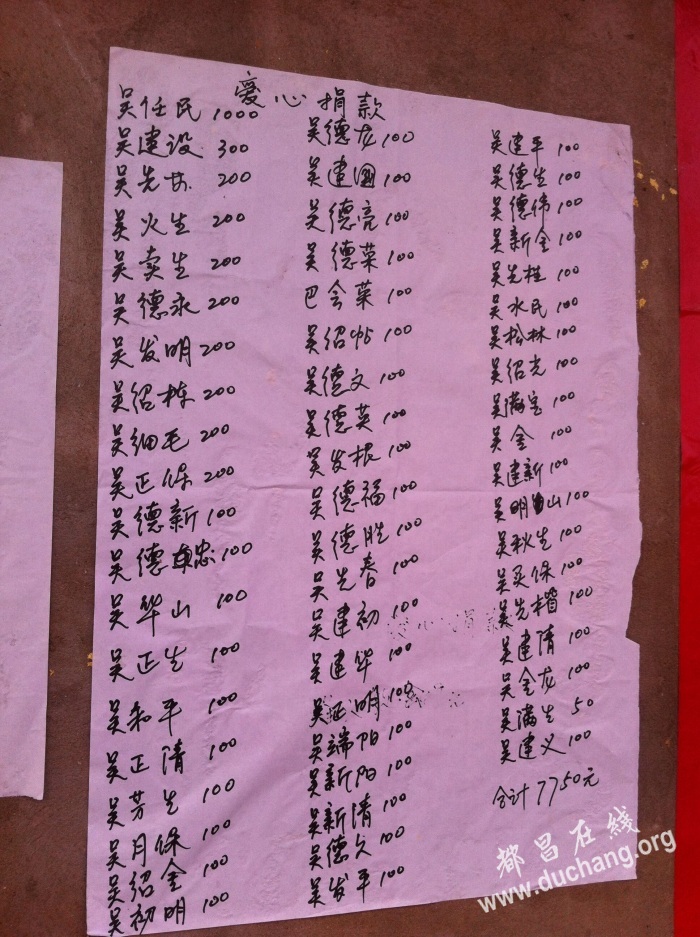 爱心捐款
吴任民 1000
吴建设 300
吴先 200
吴火生 200
吴卖生 200
吴德永 200
吴发明 200
吴绍栋 200
吴细毛 200
吴正保 200
吴德新 100
吴德忠 100
吴华山 100
吴正生 100
吴和平 100
吴正清 100
吴芳生 100
吴月保 100
吴绍金 100
吴初明 100
吴德龙 100
吴建国 100
吴德亮 100
吴德菜 100
巴会菜 100
吴绍帖 100
吴德文 100
吴德英 100
吴发根 100
吴德福 100
吴德胜 100
吴先春 100
吴建初 100
吴建华 100
吴正明 100
吴端阳 100
吴新阳 100
吴新清 100
吴德久 100
吴发平 100
吴建平 100
吴德生 100
吴德伟 100
吴新全 100
吴先桂 100
吴水民 100
吴松林 100
吴绍光 100
吴满宝 100
吴金 100
吴建新 100
吴明山 100
吴秋生 100
吴买保 100
吴先楷 100
吴建清 100
吴金龙 100
吴满生 50
吴建义 100
合计7750元
都昌在线
www.duchang.org